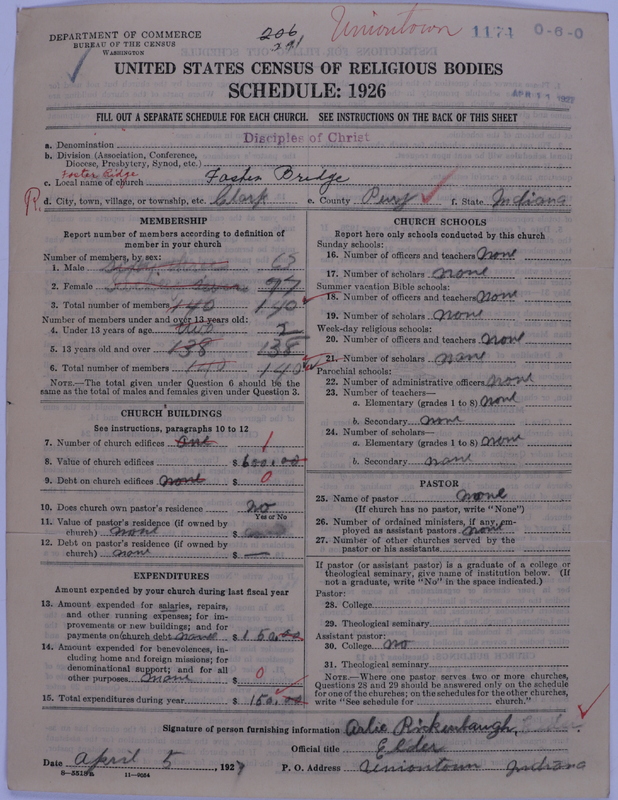 DEPARTMENT OF COMMERCE
BUREAU OF THE CENSUS
WASHINGTON
206
Uniontown
1174
0-6-0
UNITED STATES CENSUS OF RELIGIOUS BODIES
SCHEDULE: 1926
FILL OUT A SEPARATE SCHEDULE FOR EACH CHURCH. SEE INSTRUCTIONS ON THE BACK OF THIS SHEET
Disciples of Christ
a. Denomination
b. Division (Association, Conference,
Diocese, Presbytery, Synod, etc.)
Foster Ridge
c. Local name of church Foster Bridge
R. d. City, town, village, or township, etc. Clark e. County Perry f. State Indiana
MEMBERSHIP
Report number of members according to definition of
member in your church
Number of members, by sex:
1. Male 63
2. Female 77
3. Total number of members 140 140
Number of members under and over 13 years old:
4. Under 13 years of age two 2
5. 13 years old and over 138 138
6. Total number of members 140 140
NOTE.—The total given under Question 6 should be the
same as the total of males and females given under Question 3.
CHURCH BUILDINGS
See instructions, paragraphs 10 to 12
7. Number of church edifices one 1
8. Value of church edifices $ 600.00
9. Debt on church edifices none $ 0
10. Does church own pastor's residence no
Yes or No
11. Value of pastor's residence (if owned by
church) none $
12. Debt on pastor's residence (if owned by
church) none $ —
EXPENDITURES
Amount expended by your church during last fiscal year
13. Amount expended for salaries, repairs,
and other running expenses; for im-
provements or new buildings; and for
payments on church debt none $ 150.00
14. Amount expended for benevolences, in-
cluding home and foreign missions; for
denominational support; and for all
other purposes none $ 0
15. Total expenditures during year $ 150.00
CHURCH SCHOOLS
Report here only schools conducted by this church
Sunday schools:
16. Number of officers and teachers none
17. Number of scholars none
Summer vacation Bible schools:
18. Number of officers and teachers none
19. Number of scholars none
Week-day religious schools:
20. Number of officers and teachers none
21. Number of scholars none
Parochial schools:
22. Number of administrative officers none
23. Number of teachers—
a. Elementary (grades 1 to 8) none
b. Secondary none
24. Number of scholars—
a. Elementary (grades 1 to 8) none
b. Secondary none
PASTOR
25. Name of pastor none
(If church has no pastor, write "None")
26. Number of ordained ministers, if any, em-
ployed as assistant pastors none
27. Number of other churches served by the
pastor or his assistants
If pastor (or assistant pastor) is a graduate of a college or
theological seminary, give name of institution below. (If
not a graduate, write "No" in the space indicated.)
Pastor:
28. College
29. Theological seminary
Assistant pastor:
30. College no
31. Theological seminary
NOTE.—Where one pastor serves two or more churches,
Questions 28 and 29 should be answered only on the schedule
for one of the churches; on the schedules for the other churches,
write "See schedule for church."
Signature of person furnishing information Arlie Rickenbaugh
Official title Elder
Date April 5, 1927 P. O. Address Uniontown Indiana
8—5518a 11—9064